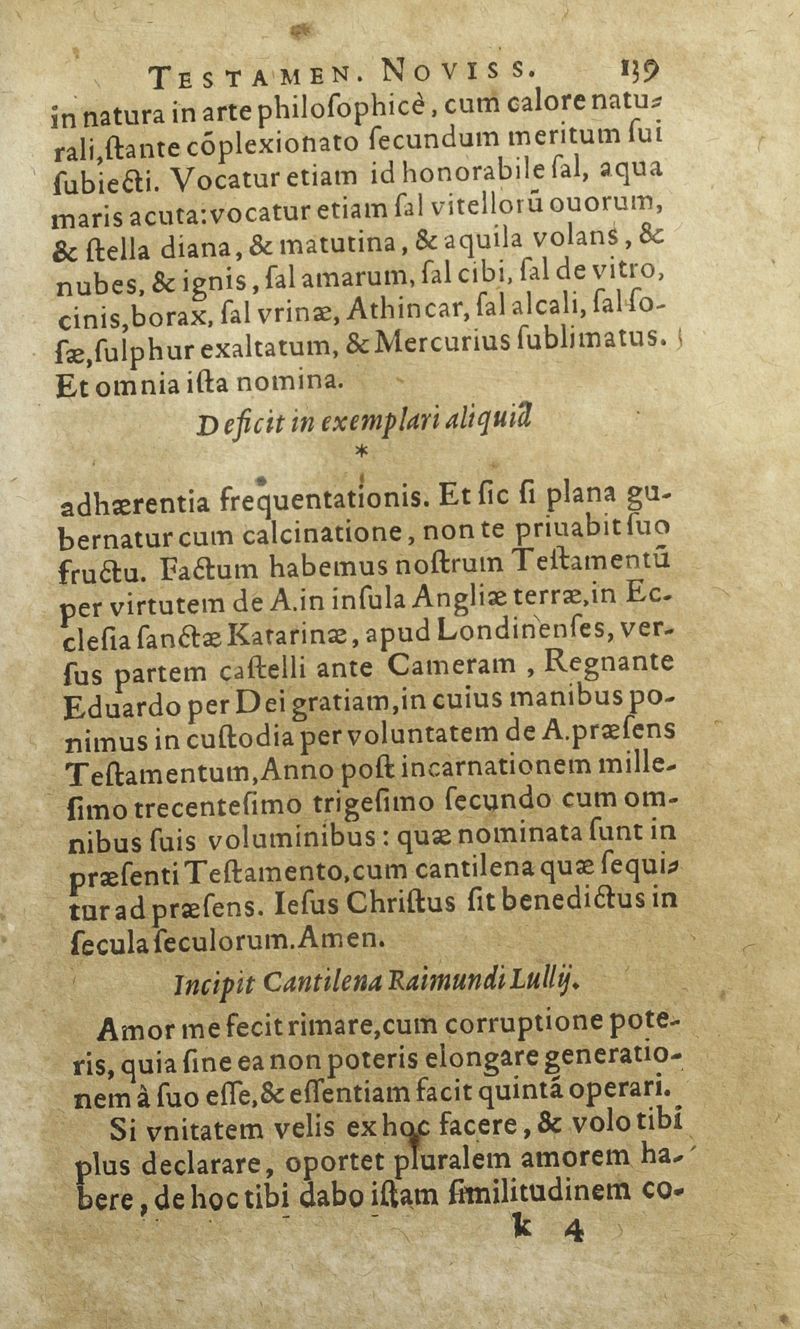 TESTAMEN. NOVISS. 139
in natura in arte philoſophicè, cum calore natu⸗
rali,ſtante cõplexionato ſecundum meritum ſui
ſubiecti. Vocatur etiam id honorabile ſal, aqua
maris acuta:vocatur etiam ſal vitellorũ ouorum,
& ſtella diana, & matutina, & aquila volans, &
nubes, & ignis, ſal amarum, ſal cibi, ſal de vitro,
cinis,borax, ſal vrinæ, Athincar, ſal alcali, ſal ſo-
ſæ,ſulphur exaltatum, & Mercurius ſublimatus.
Et omnia iſta nomina.
Deficit in exemplari aliquid
*
adhærentia frequentationis. Et ſic ſi plana gu-
bernatur cum calcinatione, non te priuabit ſuo
fructu. Factum habemus noſtrum Teſtamentũ
per virtutem de A.in inſula Angliæ terræ,in Ec-
cleſia ſanctæ Katarinæ, apud Londinenſes, ver-
ſus partem caſtelli ante Cameram , Regnante
Eduardo per Dei gratiam,in cuius manibus po-
nimus in cuſtodia per voluntatem de A.præſens
Teſtamentum,Anno poſt incarnationem mille-
ſimo trecenteſimo trigeſimo ſecundo cum om-
nibus ſuis voluminibus : quæ nominata ſunt in
præſenti Teſtamento,cum cantilena quæ ſequi⸗
tur ad præſens. Ieſus Chriſtus ſit benedictus in
ſecula ſeculorum.Amen.
Incipit Cantilena Raimundi Lullij.
Amor me fecit rimare,cum corruptione pote-
ris, quia ſine ea non poteris elongare generatio-
nem à ſuo eſſe,& eſſentiam facit quintã operari.
Si vnitatem velis ex hoc facere, & volo tibi
plus declarare, oportet pluralem amorem ha-
bere, de hoc tibi dabo iſtam ſimilitudinem co-
k 4